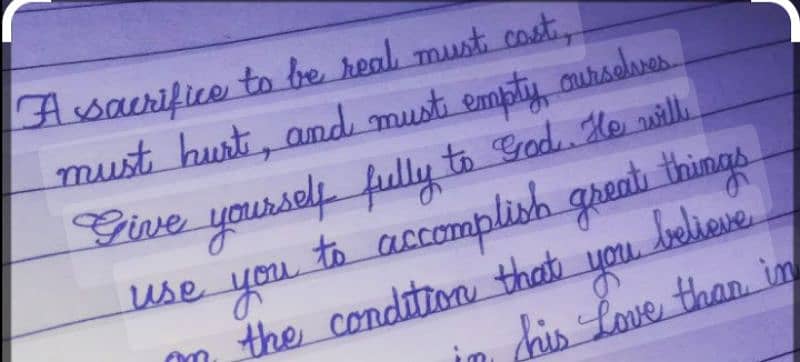 A sacrifice to be real must cost,
must hurt, and must empty ourselves
Give yourself fully to God. He will
use you to accomplish great things
on the condition that you believe
in his Love than in